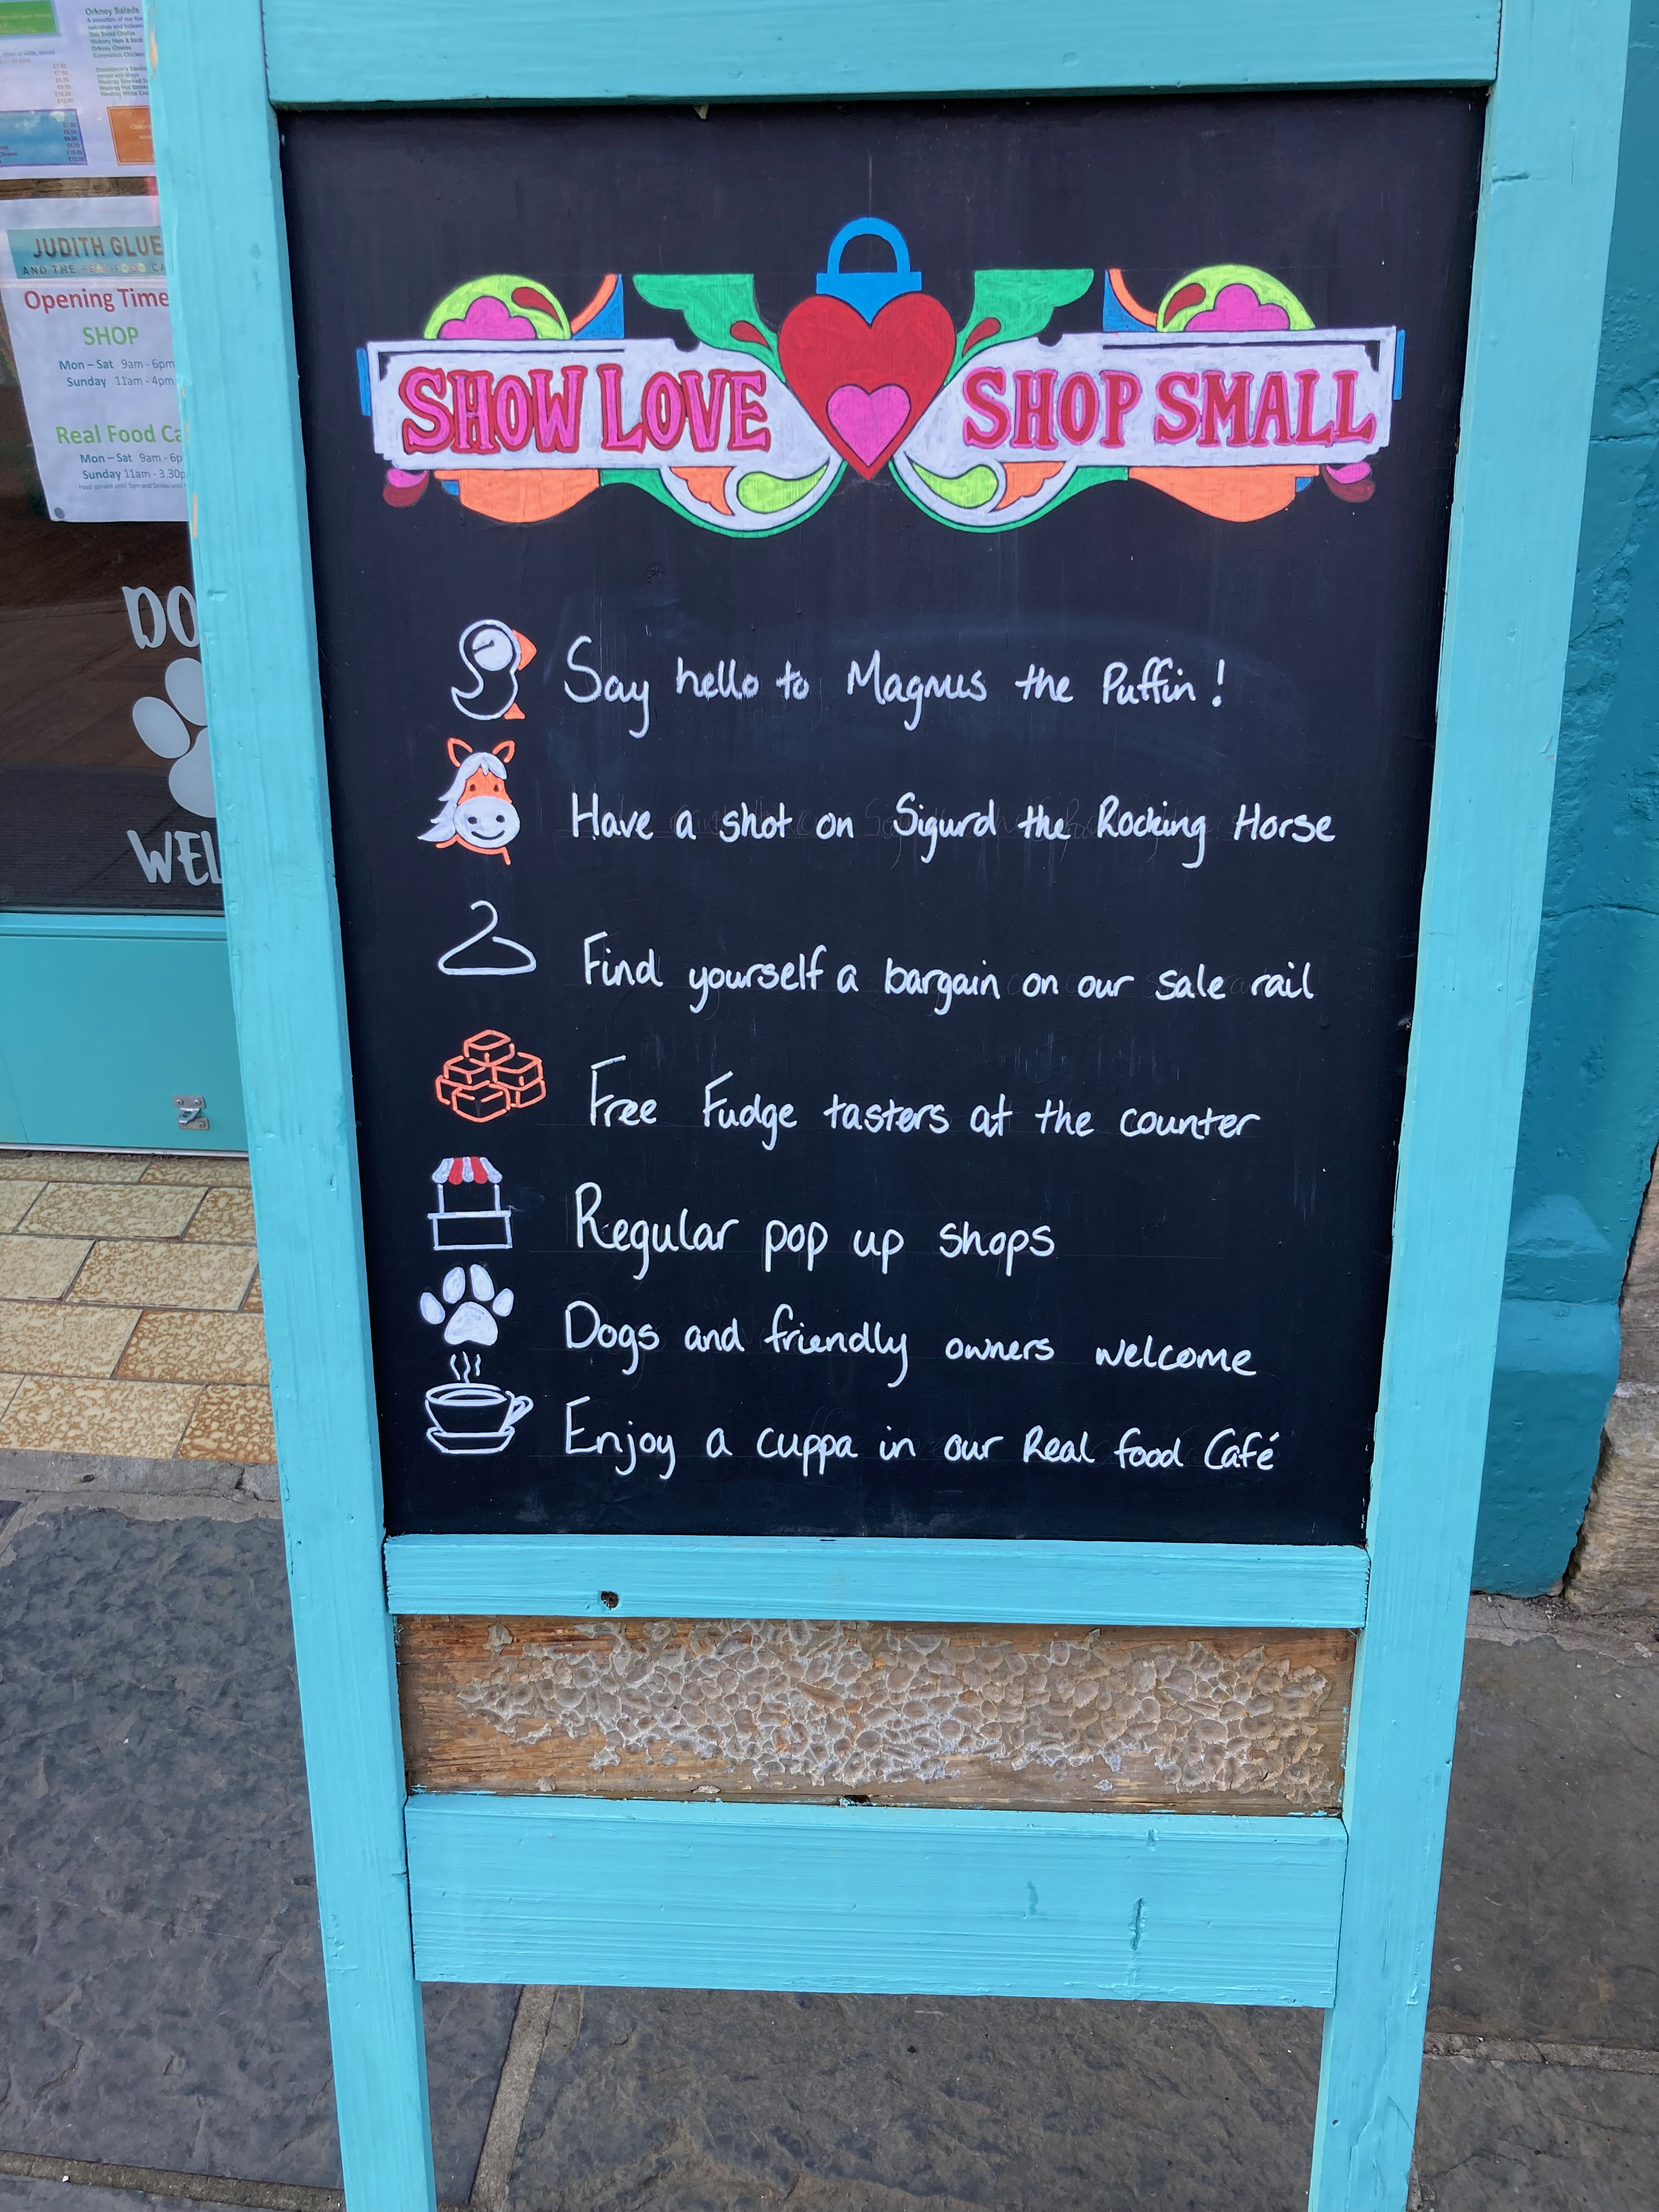 Orkney Salads
JUDITH GLUE
AND THE REAL FOOD CA
Opening Time
SHOP
Mon – Sat 9am - 6pm
Sunday 11am - 4pm
Real Food Ca
Mon – Sat 9am - 6p
Sunday 11am - 3.30p
DO
WEL
SHOW LOVE SHOP SMALL
Say hello to Magnus the Puffin!
Have a shot on Sigurd the Rocking Horse
Find yourself a bargain on our sale rail
Free Fudge tasters at the counter
Regular pop up shops
Dogs and friendly owners welcome
Enjoy a cuppa in our Real food Café